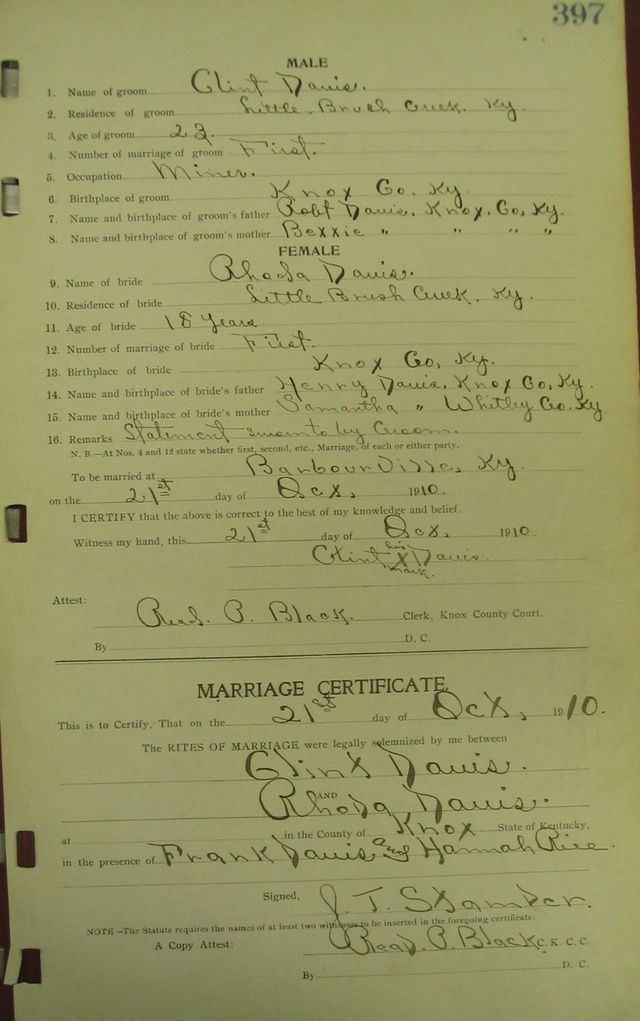 397
MALE
1. Name of groom Clint Davis.
2. Residence of groom Little Brush Creek. Ky.
3. Age of groom 23.
4. Number of marriage of groom First.
5. Occupation Miner.
6. Birthplace of groom Knox Co. Ky.
7. Name and birthplace of groom's father Robt Davis. Knox. Co. Ky.
8. Name and birthplace of groom's mother " " " "
FEMALE
9. Name of bride Rhoda Davis.
10. Residence of bride Little Brush Creek. Ky.
11. Age of bride 18 Years
12. Number of marriage of bride First.
13. Birthplace of bride Knox Co, Ky.
14. Name and birthplace of bride's father Henry Davis. Knox Co, Ky.
15. Name and birthplace of bride's mother Samantha " Whitley Co. Ky.
16. Remarks Statement sworn to by Groom.
N. B.—At Nos. 4 and 12 state whether first, second, etc., Marriage, of each or either party.
To be married at Barbourville, Ky.
on the 21st day of Oct, 1910.
I CERTIFY that the above is correct to the best of my knowledge and belief.
Witness my hand, this 21st day of Oct, 1910
Clint his X mark. Davis.
Attest:
Read. P. Black. Clerk, Knox County Court.
By D. C.
MARRIAGE CERTIFICATE.
This is to Certify, That on the 21st day of Oct, 1910.
The RITES OF MARRIAGE were legally solemnized by me between
Clint Davis.
AND
Rhoda Davis.
at in the County of Knox State of Kentucky,
in the presence of Frank Davis and Hannah Rice.
Signed, J. T.
NOTE—The Statute requires the names of at least two witnesses to be inserted in the foregoing certificate.
A Copy Attest: Read. P. Black C. K. C. C.
By D. C.